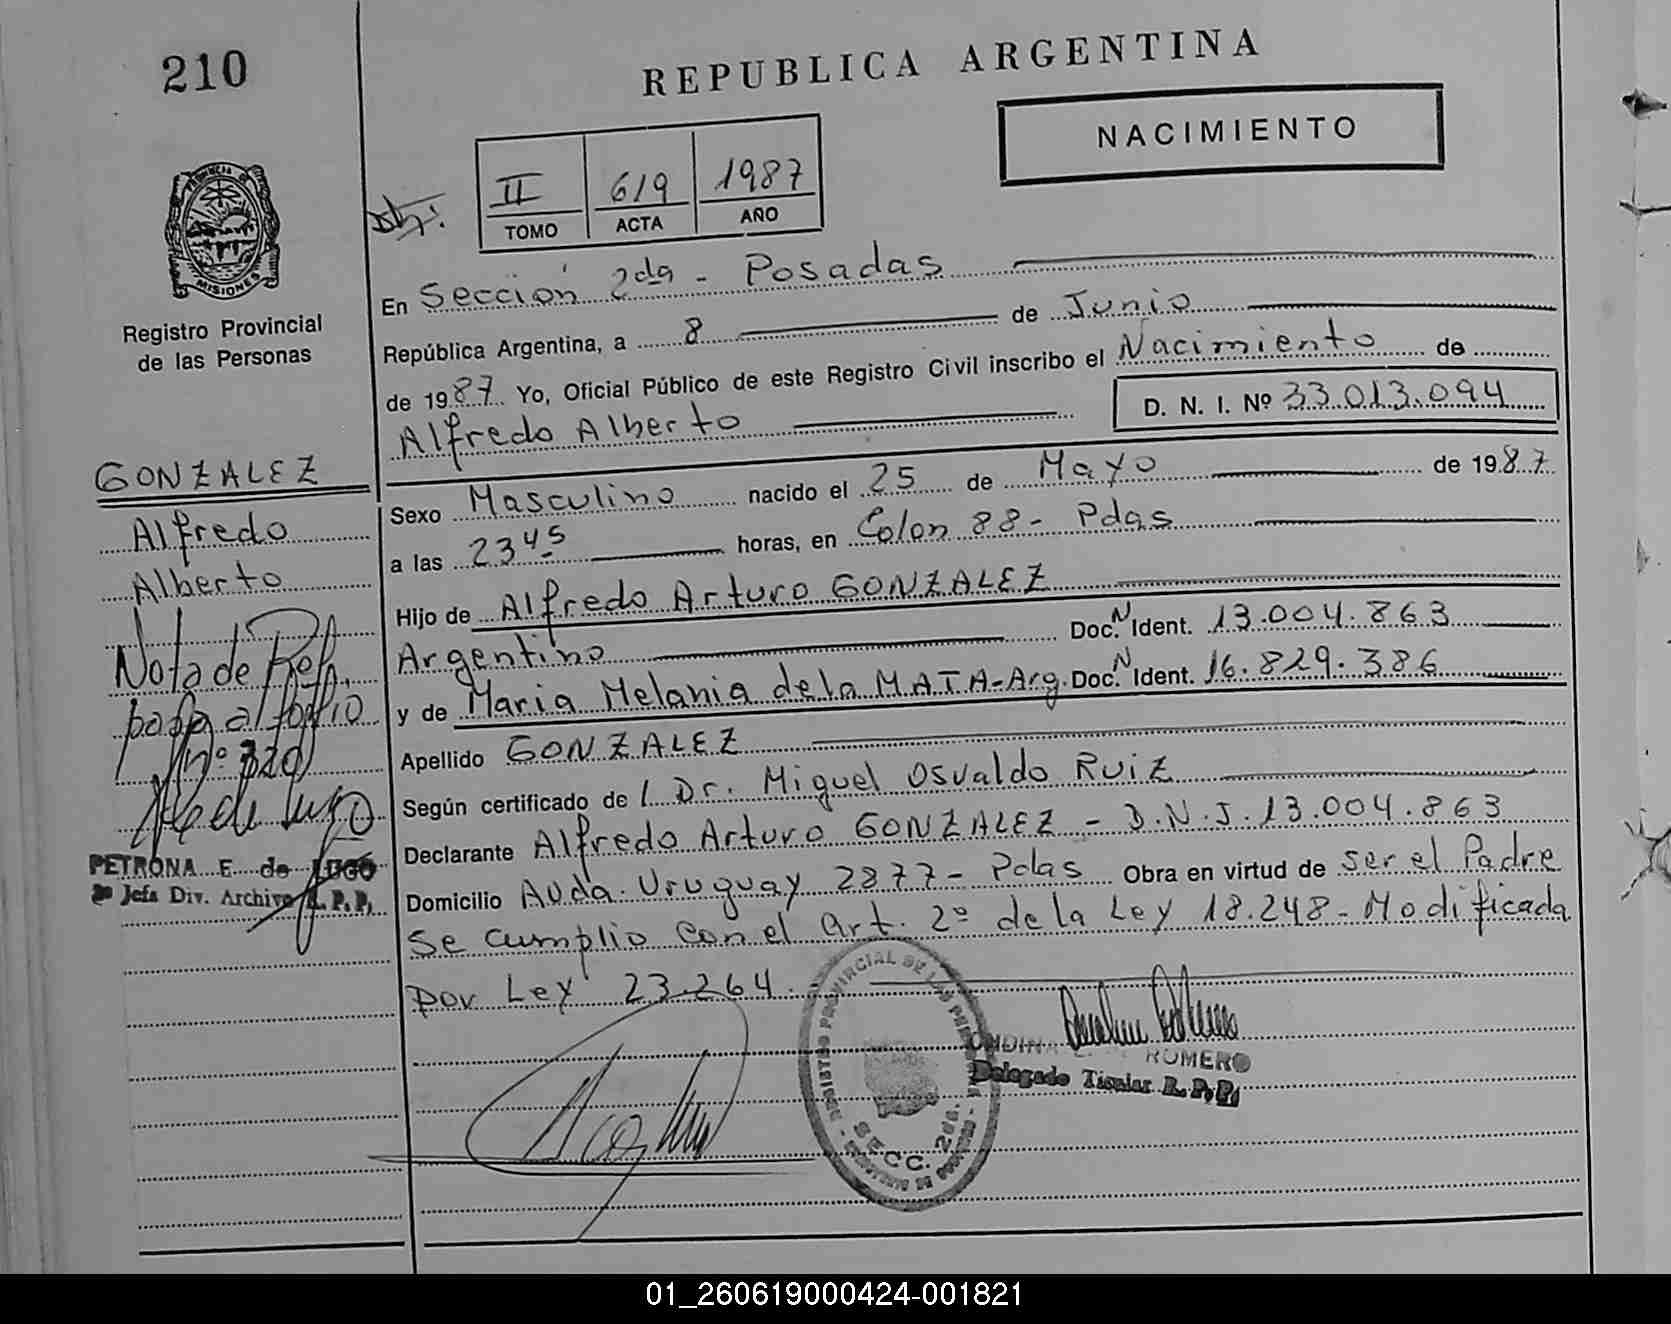 210
REPUBLICA ARGENTINA
NACIMIENTO
II 619 1987
TOMO ACTA AÑO
PROVINCIA DE
MISIONES
Registro Provincial
de las Personas
En Sección 2da - Posadas
República Argentina, a 8 de Junio
de 1987 Yo, Oficial Público de este Registro Civil inscribo el Nacimiento de
Alfredo Alberto D. N. I. Nº 33.013.094
GONZALEZ
Alfredo
Alberto
Nota de Ref.
pasa al folio
Nº 320
PETRONA E. de LUGO
Jefa Div. Archivo R. P. P.
Sexo Masculino nacido el 25 de Mayo de 1987
a las 23 45 horas, en Colon 88 - Pdas
Hijo de Alfredo Arturo GONZALEZ
Argentino Doc. N Ident. 13.004.863
y de Maria Melania de la MATA - Arg. Doc. N Ident. 16.829.386
Apellido GONZALEZ
Según certificado de l Dr. Miguel Osvaldo RUIZ
Declarante Alfredo Arturo GONZALEZ - D.N.I. 13.004.863
Domicilio Avda. Uruguay 2877 - Pdas Obra en virtud de ser el Padre
Se cumplio con el art. 2º de la Ley 18.248 - Modificada
por Ley 23.264.
REGISTRO PROVINCIAL DE LAS PERSONAS
SECC. 2da.
ROMERO
Delegado Titular R. P. P.
01_260619000424-001821